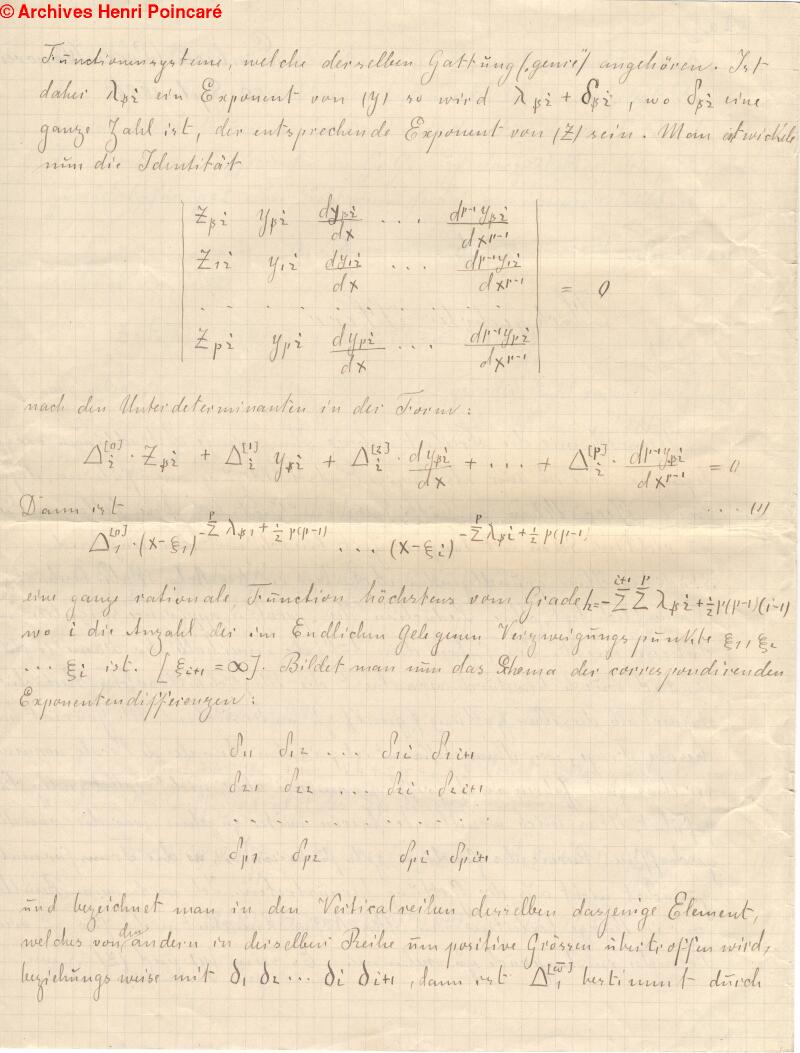 © Archives Henri Poincaré
Functionensysteme, welche derselben Gattung („genre“) angehören. Ist
daher λ_βi ein Exponent von (y) so wird λ_βi + δ_βi, wo δ_βi eine
ganze Zahl ist, der entsprechende Exponent von (z) sein. Man entwickele
nun die Identität
| z_βi y_βi dy_βi/dx . . . d^(p-1)y_βi/dx^(p-1) |
| z_1i y_1i dy_1i/dx . . . d^(p-1)y_1i/dx^(p-1) | = 0
. . . . . . . . . .
| z_pi y_pi dy_pi/dx . . . d^(p-1)y_pi/dx^(p-1) |
nach den Unterdeterminanten in der Form:
Δ_i^[0] · z_βi + Δ_i^[1] y_βi + Δ_i^[2] · dy_βi/dx + . . . + Δ_i^[p] · d^(p-1)y_βi/dx^(p-1) = 0
. . . (1)
Dann ist
Δ_1^[0] · (x-ξ_1)^(-Σ^p λ_β1 + ½ p(p-1)) . . . (x-ξ_i)^(-Σ^p λ_βi + ½ p(p-1))
eine ganze rationale Function höchstens vom Grade h = -Σ^(i+1) Σ^p λ_βi + ½ p(p-1)(i-1)
wo i die Anzahl der im Endlichen gelegenen Verzweigungspunkte ξ_1, ξ_2
... ξ_i ist. [ξ_i+1 = ∞]. Bildet man nun das Schema der correspondirenden
Exponentendifferenzen:
δ_11 δ_12 . . . δ_1i δ_1i+1
δ_21 δ_22 . . . δ_2i δ_2i+1
. . . . . . . . . .
δ_p1 δ_p2 δ_pi δ_pi+1
und bezeichnet man in den Verticalreihen desselben dasjenige Element,
welches von den andern in derselben Reihe um positive Grössen übertroffen wird,
beziehungsweise mit δ_1 δ_2 ... δ_i δ_i+1, dann ist Δ_1^[ω] bestimmt durch